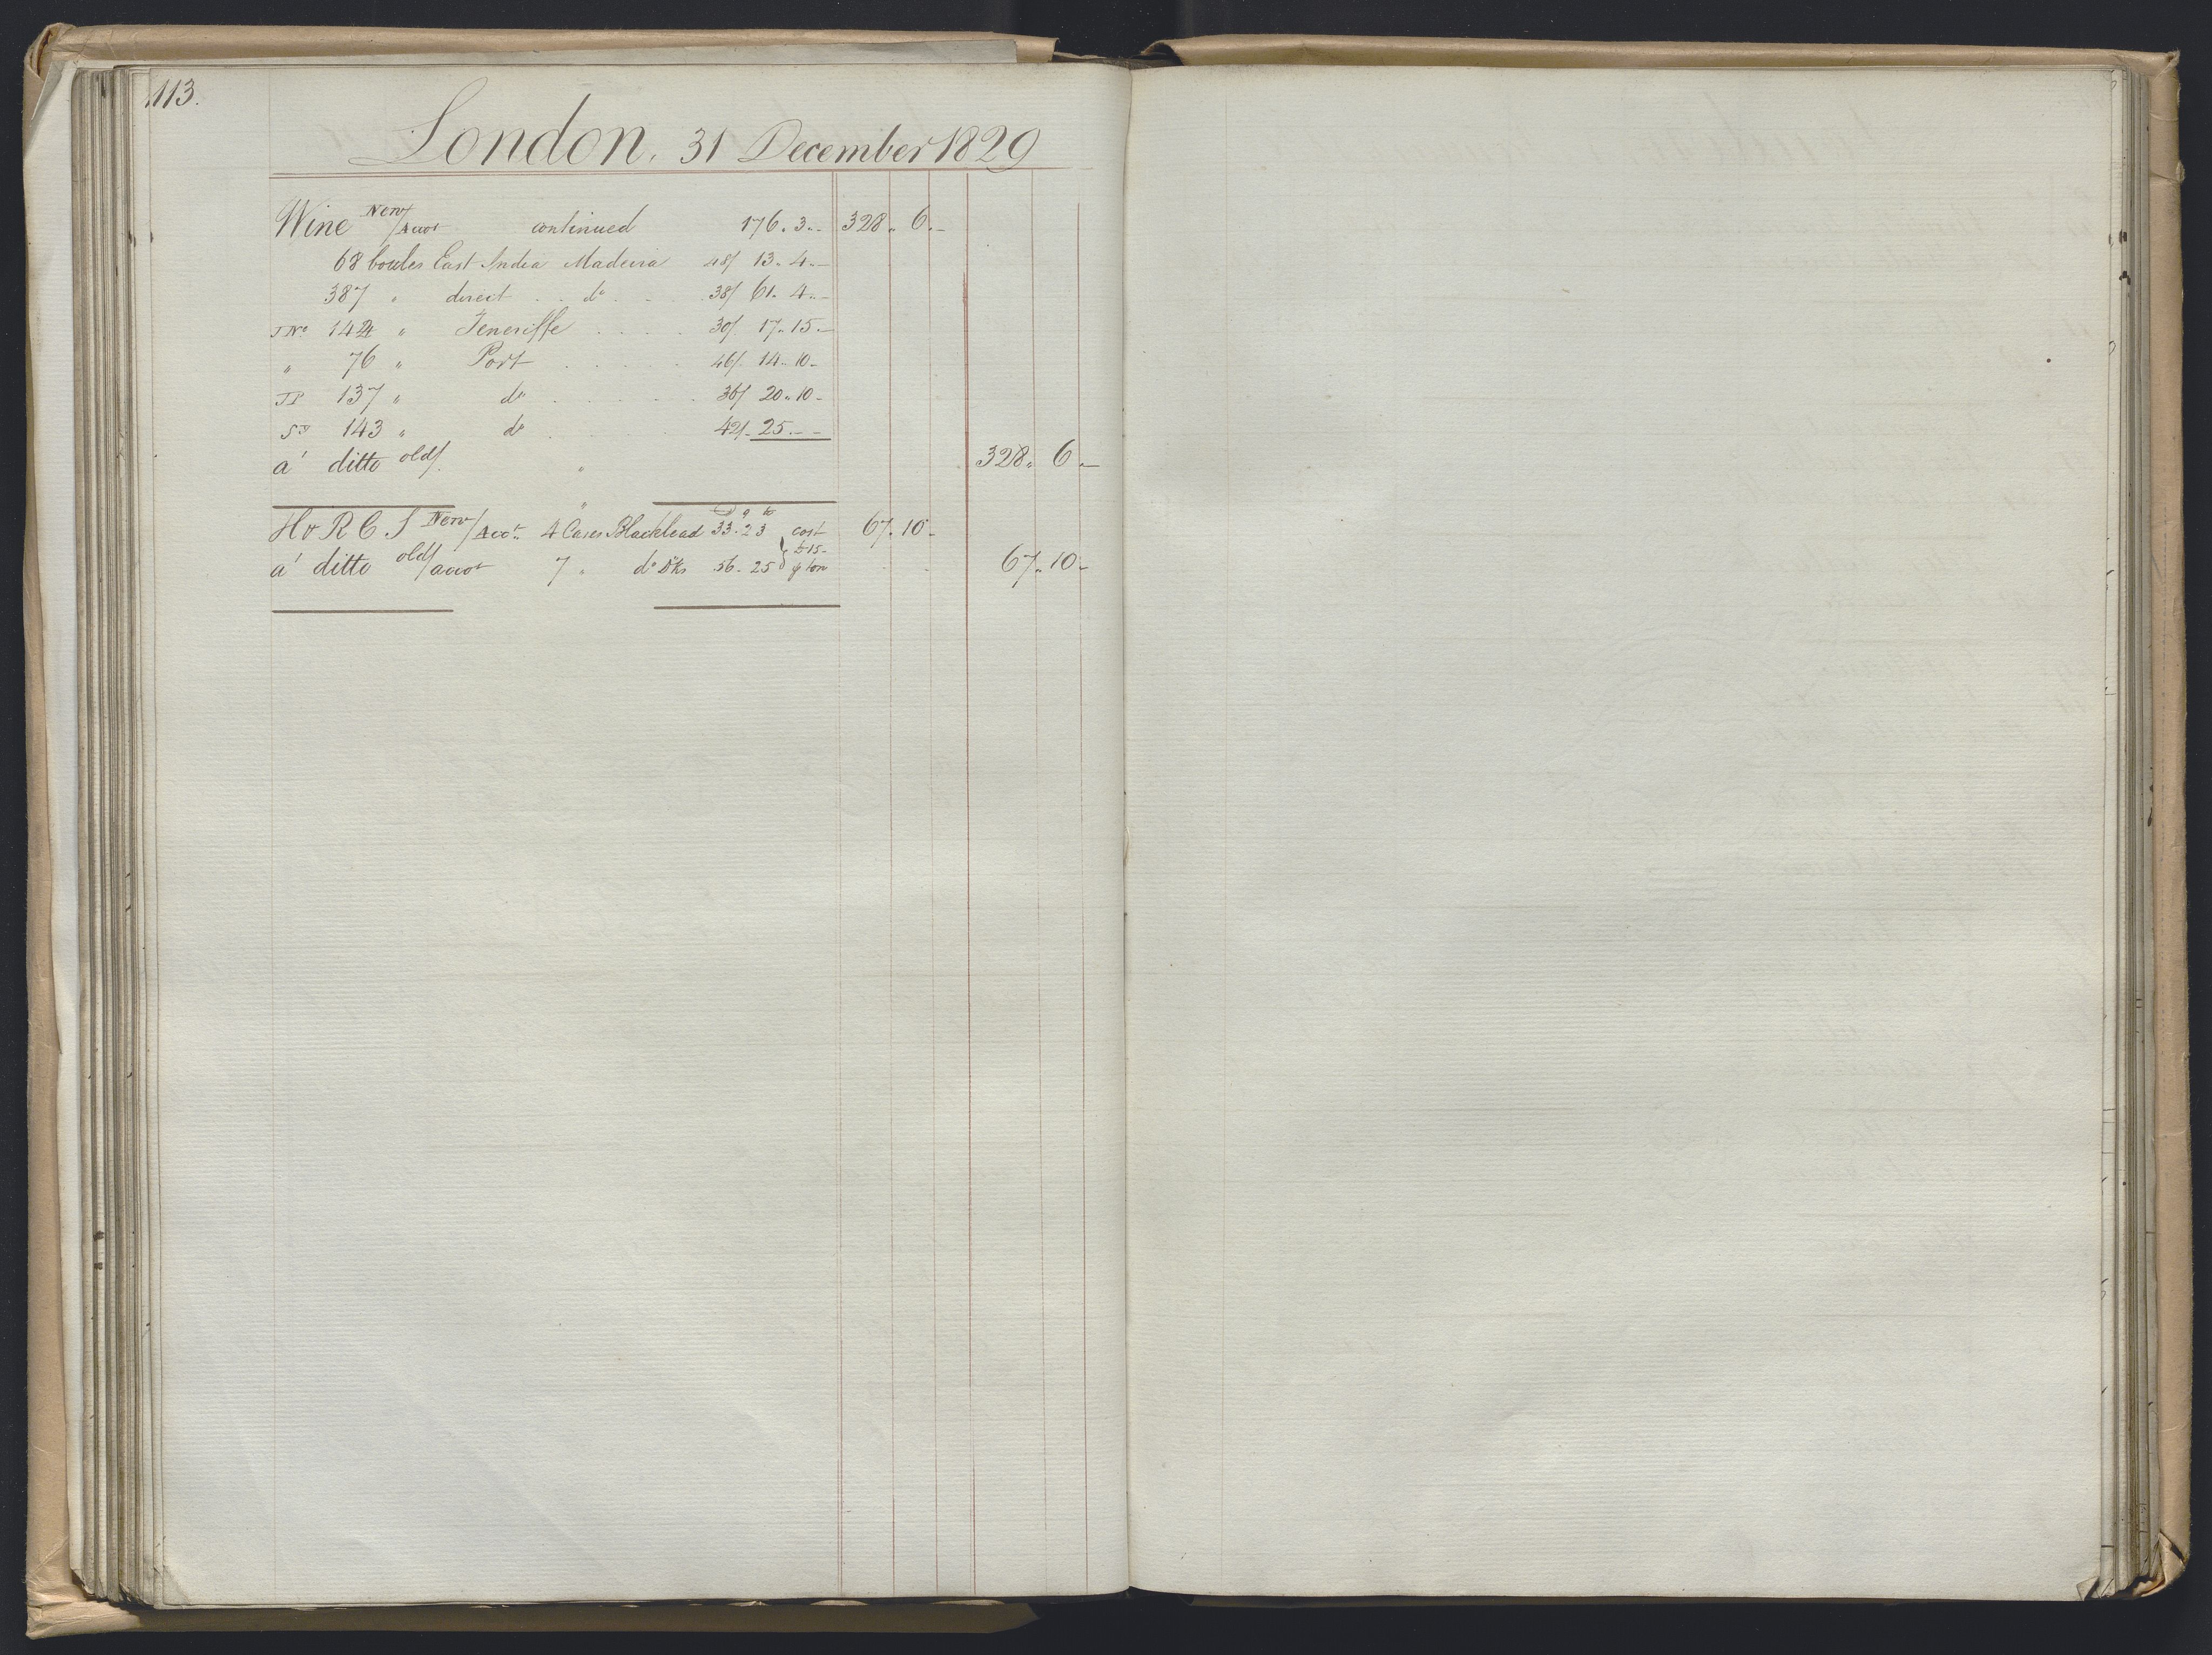 113.
London. 31 December 1829
Wine New/Accot continued 176. 3.. 328. 6.-
68 bottles East India Madeira 48/ 13. 4.-
387 " direct . . do . . . 38/ 61. 4..-
TNo 142 " Teneriffe . . . . 30/. 17. 15.-
" 76 " Port . . . . . 46/. 14.. 10-
TP 137 " do . . . . . 36/ 20. 10-
143 " do . . . . 42/. 25.--
a' ditto old/. " 328. 6.-
H & R C. S New/Acct. 4 Cases Blacklead 33. 2 3 cost 67. 10-
£15-
a' ditto old/accot 7 " do Dks 56. 25 ⅌ ton 67.. 10-